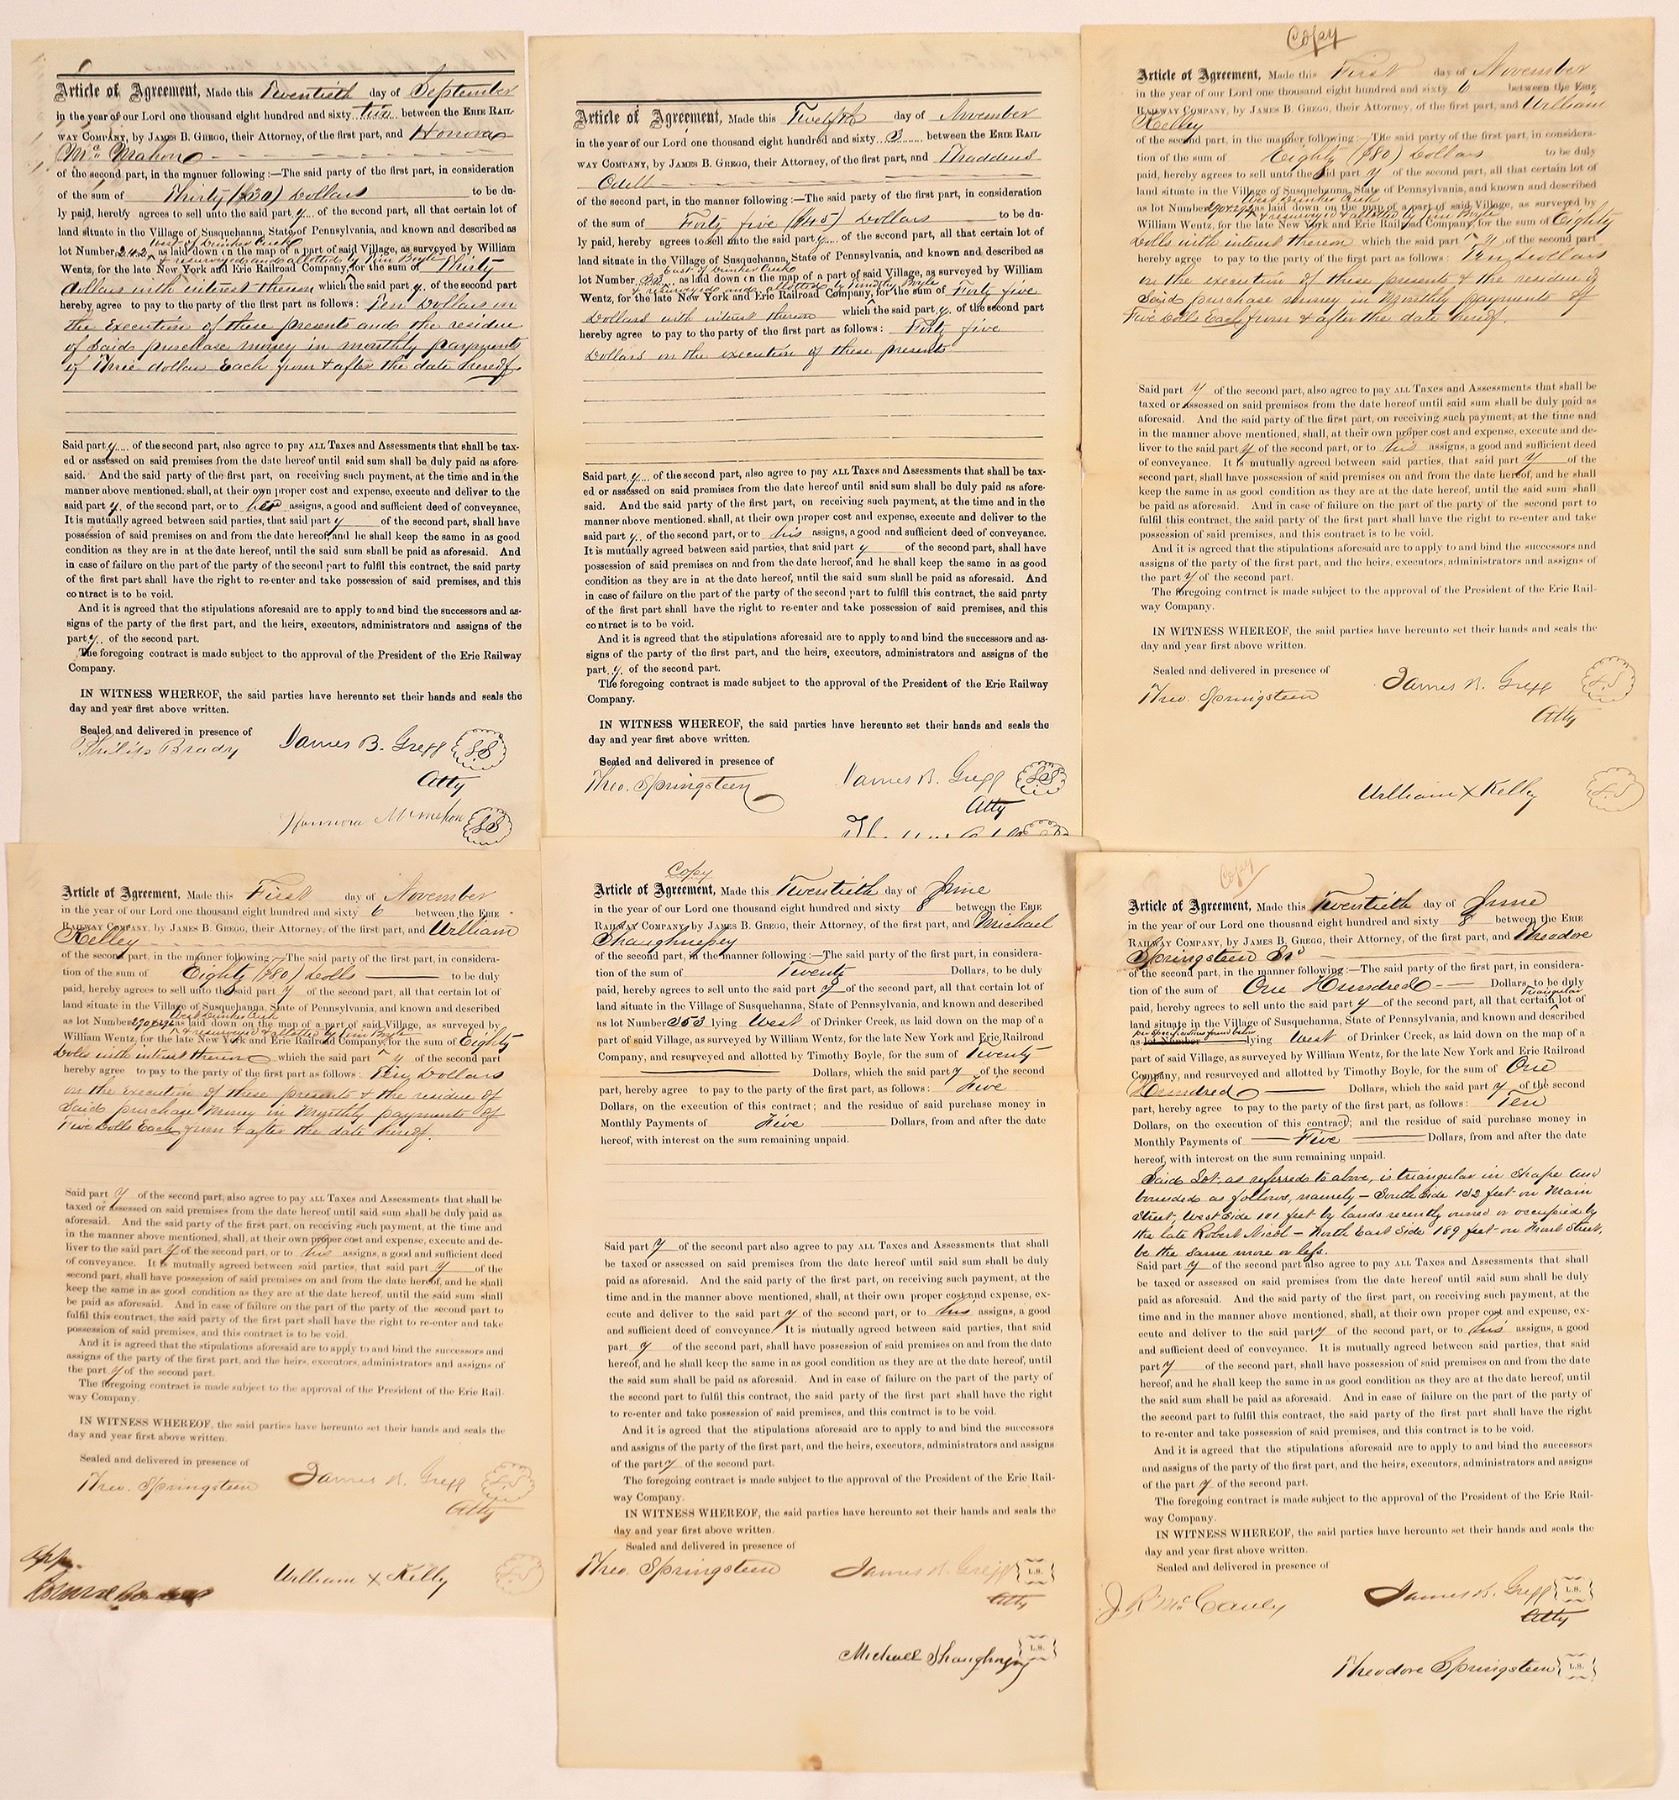 Article of Agreement, Made this Twentieth day of September
in the year of our Lord one thousand eight hundred and sixty two between the ERIE RAIL-
WAY COMPANY, by JAMES B. GREGG, their Attorney, of the first part, and Honora
Mc Mahon
of the second part, in the manner following:—The said party of the first part, in consideration
of the sum of Thirty ($30) Dollars to be du-
ly paid, hereby agrees to sell unto the said party of the second part, all that certain lot of
land situate in the Village of Susquehanna, State of Pennsylvania, and known and described as
West of Drinker Creek
lot Number 242 as laid down on the map of a part of said Village, as surveyed by William
& resurveyed and allotted by Tim Boyle
Wentz, for the late New York and Erie Railroad Company, for the sum of Thirty
dollars with interest thereon which the said party of the second part
hereby agree to pay to the party of the first part as follows: Ten Dollars on
the execution of these presents and the residue
of said purchase money in monthly payments
of Three dollars Each from & after the date hereof
Said party of the second part, also agree to pay ALL Taxes and Assessments that shall be tax-
ed or assessed on said premises from the date hereof until said sum shall be duly paid as afore-
said. And the said party of the first part, on receiving such payment, at the time and in the
manner above mentioned, shall, at their own proper cost and expense, execute and deliver to the
said party of the second part, or to her assigns, a good and sufficient deed of conveyance.
It is mutually agreed between said parties, that said party of the second part, shall have
possession of said premises on and from the date hereof, and he shall keep the same in as good
condition as they are in at the date hereof, until the said sum shall be paid as aforesaid. And
in case of failure on the part of the party of the second part to fulfil this contract, the said party
of the first part shall have the right to re-enter and take possession of said premises, and this
contract is to be void.
And it is agreed that the stipulations aforesaid are to apply to and bind the successors and as-
signs of the party of the first part, and the heirs, executors, administrators and assigns of the
party of the second part.
The foregoing contract is made subject to the approval of the President of the Erie Railway
Company.
IN WITNESS WHEREOF, the said parties have hereunto set their hands and seals the
day and year first above written.
Sealed and delivered in presence of
Philip Brady James B. Gregg L.S
Atty
Honnora Mcmahon L.S
Article of Agreement, Made this Twelfth day of November
in the year of our Lord one thousand eight hundred and sixty 3 between the ERIE RAIL-
WAY COMPANY, by JAMES B. GREGG, their Attorney, of the first part, and Thaddeus
Odell
of the second part, in the manner following:—The said party of the first part, in consideration
of the sum of Forty five ($45) Dollars to be du-
ly paid, hereby agrees to sell unto the said party of the second part, all that certain lot of
land situate in the Village of Susquehanna, State of Pennsylvania, and known and described as
East of Drinker Creek
lot Number as laid down on the map of a part of said Village, as surveyed by William
& resurveyed and allotted by Timothy Boyle
Wentz, for the late New York and Erie Railroad Company, for the sum of Forty five
Dollars with interest thereon which the said party of the second part
hereby agree to pay to the party of the first part as follows: Forty five
Dollars on the execution of these presents
Said party of the second part, also agree to pay ALL Taxes and Assessments that shall be tax-
ed or assessed on said premises from the date hereof until said sum shall be duly paid as afore-
said. And the said party of the first part, on receiving such payment, at the time and in the
manner above mentioned, shall, at their own proper cost and expense, execute and deliver to the
said party of the second part, or to his assigns, a good and sufficient deed of conveyance.
It is mutually agreed between said parties, that said party of the second part, shall have
possession of said premises on and from the date hereof, and he shall keep the same in as good
condition as they are in at the date hereof, until the said sum shall be paid as aforesaid. And
in case of failure on the part of the party of the second part to fulfil this contract, the said party
of the first part shall have the right to re-enter and take possession of said premises, and this
contract is to be void.
And it is agreed that the stipulations aforesaid are to apply to and bind the successors and as-
signs of the party of the first part, and the heirs, executors, administrators and assigns of the
party of the second part.
The foregoing contract is made subject to the approval of the President of the Erie Railway
Company.
IN WITNESS WHEREOF, the said parties have hereunto set their hands and seals the
day and year first above written.
Sealed and delivered in presence of
Theo. Springsteen James B. Gregg L.S
Atty
Copy
Article of Agreement, Made this First day of November
in the year of our Lord one thousand eight hundred and sixty 6 between the ERIE
RAILWAY COMPANY, by JAMES B. GREGG, their Attorney, of the first part, and William
Kelley
of the second part, in the manner following:—The said party of the first part, in considera-
tion of the sum of Eighty ($80) Dollars to be duly
paid, hereby agrees to sell unto the said party of the second part, all that certain lot of
land situate in the Village of Susquehanna, State of Pennsylvania, and known and described
West Drinker Creek
as lot Number 290&292 as laid down on the map of a part of said Village, as surveyed by
& resurveyed & allotted by Tim Boyle
William Wentz, for the late New York and Erie Railroad Company, for the sum of Eighty
Dolls with interest thereon which the said party of the second part
hereby agree to pay to the party of the first part as follows: Ten Dollars
on the execution of these presents & the residue of
said purchase money in Monthly payments of
Five Dolls Each from & after the date hereof.
Said party of the second part, also agree to pay ALL Taxes and Assessments that shall be
taxed or assessed on said premises from the date hereof until said sum shall be duly paid as
aforesaid. And the said party of the first part, on receiving such payment, at the time and
in the manner above mentioned, shall, at their own proper cost and expense, execute and de-
liver to the said party of the second part, or to his assigns, a good and sufficient deed
of conveyance. It is mutually agreed between said parties, that said party of the
second part, shall have possession of said premises on and from the date hereof, and he shall
keep the same in as good condition as they are at the date hereof, until the said sum shall
be paid as aforesaid. And in case of failure on the part of the party of the second part to
fulfil this contract, the said party of the first part shall have the right to re-enter and take
possession of said premises, and this contract is to be void.
And it is agreed that the stipulations aforesaid are to apply to and bind the successors and
assigns of the party of the first part, and the heirs, executors, administrators and assigns of
the party of the second part.
The foregoing contract is made subject to the approval of the President of the Erie Rail-
way Company.
IN WITNESS WHEREOF, the said parties have hereunto set their hands and seals the
day and year first above written.
Sealed and delivered in presence of
Theo. Springsteen James B. Gregg L.S
Atty
William X Kelly L.S
Article of Agreement, Made this First day of November
in the year of our Lord one thousand eight hundred and sixty 6 between the ERIE
RAILWAY COMPANY, by JAMES B. GREGG, their Attorney, of the first part, and William
Kelley
of the second part, in the manner following:—The said party of the first part, in considera-
tion of the sum of Eighty ($80) Dolls to be duly
paid, hereby agrees to sell unto the said party of the second part, all that certain lot of
land situate in the Village of Susquehanna, State of Pennsylvania, and known and described
West Drinker Creek
as lot Number 290&292 as laid down on the map of a part of said Village, as surveyed by
& resurveyed & allotted by Tim Boyle
William Wentz, for the late New York and Erie Railroad Company, for the sum of Eighty
Dolls with interest thereon which the said party of the second part
hereby agree to pay to the party of the first part as follows: Ten Dollars
on the execution of these presents & the residue of
said purchase money in Monthly payments of
Five Dolls Each from & after the date hereof.
Said party of the second part, also agree to pay ALL Taxes and Assessments that shall be
taxed or assessed on said premises from the date hereof until said sum shall be duly paid as
aforesaid. And the said party of the first part, on receiving such payment, at the time and
in the manner above mentioned, shall, at their own proper cost and expense, execute and de-
liver to the said party of the second part, or to his assigns, a good and sufficient deed
of conveyance. It is mutually agreed between said parties, that said party of the
second part, shall have possession of said premises on and from the date hereof, and he shall
keep the same in as good condition as they are at the date hereof, until the said sum shall
be paid as aforesaid. And in case of failure on the part of the party of the second part to
fulfil this contract, the said party of the first part shall have the right to re-enter and take
possession of said premises, and this contract is to be void.
And it is agreed that the stipulations aforesaid are to apply to and bind the successors and
assigns of the party of the first part, and the heirs, executors, administrators and assigns of
the party of the second part.
The foregoing contract is made subject to the approval of the President of the Erie Rail-
way Company.
IN WITNESS WHEREOF, the said parties have hereunto set their hands and seals the
day and year first above written.
Sealed and delivered in presence of
Theo. Springsteen James B. Gregg L.S
Atty
App.
William X Kelly L.S
Copy
Article of Agreement, Made this Twentieth day of June
in the year of our Lord one thousand eight hundred and sixty 8 between the ERIE
RAILWAY COMPANY, by JAMES B. GREGG, their Attorney, of the first part, and Michael
Shaughnessy
of the second part, in the manner following:—The said party of the first part, in considera-
tion of the sum of Twenty Dollars, to be duly
paid, hereby agrees to sell unto the said party of the second part, all that certain lot of
land situate in the Village of Susquehanna, State of Pennsylvania, and known and described
as lot Number 353 lying West of Drinker Creek, as laid down on the map of a
part of said Village, as surveyed by William Wentz, for the late New York and Erie Railroad
Company, and resurveyed and allotted by Timothy Boyle, for the sum of Twenty
Dollars, which the said party of the second
part, hereby agree to pay to the party of the first part, as follows: Five
Dollars, on the execution of this contract; and the residue of said purchase money in
Monthly Payments of Five Dollars, from and after the date
hereof, with interest on the sum remaining unpaid.
Said party of the second part also agree to pay ALL Taxes and Assessments that shall
be taxed or assessed on said premises from the date hereof until said sum shall be duly
paid as aforesaid. And the said party of the first part, on receiving such payment, at the
time and in the manner above mentioned, shall, at their own proper cost and expense, ex-
ecute and deliver to the said party of the second part, or to his assigns, a good
and sufficient deed of conveyance. It is mutually agreed between said parties, that said
party of the second part, shall have possession of said premises on and from the date
hereof, and he shall keep the same in as good condition as they are at the date hereof, until
the said sum shall be paid as aforesaid. And in case of failure on the part of the party of
the second part to fulfil this contract, the said party of the first part shall have the right
to re-enter and take possession of said premises, and this contract is to be void.
And it is agreed that the stipulations aforesaid are to apply to and bind the successors
and assigns of the party of the first part, and the heirs, executors, administrators and assigns
of the party of the second part.
The foregoing contract is made subject to the approval of the President of the Erie Rail-
way Company.
IN WITNESS WHEREOF, the said parties have hereunto set their hands and seals the
day and year first above written.
Sealed and delivered in presence of
Theo. Springsteen James B. Gregg L.S.
Atty
Michael Shaughnessy L.S.
Copy
Article of Agreement, Made this Twentieth day of June
in the year of our Lord one thousand eight hundred and sixty 8 between the ERIE
RAILWAY COMPANY, by JAMES B. GREGG, their Attorney, of the first part, and Theodore
Springsteen
of the second part, in the manner following:—The said party of the first part, in considera-
tion of the sum of One Hundred Dollars, to be duly
triangular
paid, hereby agrees to sell unto the said party of the second part, all that certain lot of
land situate in the Village of Susquehanna, State of Pennsylvania, and known and described
per specifications given below
as lot Number lying West of Drinker Creek, as laid down on the map of a
part of said Village, as surveyed by William Wentz, for the late New York and Erie Railroad
Company, and resurveyed and allotted by Timothy Boyle, for the sum of One
Hundred Dollars, which the said party of the second
part, hereby agree to pay to the party of the first part, as follows: Ten
Dollars, on the execution of this contract; and the residue of said purchase money in
Monthly Payments of Five Dollars, from and after the date
hereof, with interest on the sum remaining unpaid.
Said Lot as referred to above, is triangular in shape and
bounded as follows, namely — South Side 132 feet on Main
Street, West Side 101 feet by lands recently owned or occupied by
the late Robert Nicol — North East Side 189 feet on Front Street,
be the same more or less.
Said party of the second part also agree to pay ALL Taxes and Assessments that shall
be taxed or assessed on said premises from the date hereof until said sum shall be duly
paid as aforesaid. And the said party of the first part, on receiving such payment, at the
time and in the manner above mentioned, shall, at their own proper cost and expense, ex-
ecute and deliver to the said party of the second part, or to his assigns, a good
and sufficient deed of conveyance. It is mutually agreed between said parties, that said
party of the second part, shall have possession of said premises on and from the date
hereof, and he shall keep the same in as good condition as they are at the date hereof, until
the said sum shall be paid as aforesaid. And in case of failure on the part of the party of
the second part to fulfil this contract, the said party of the first part shall have the right
to re-enter and take possession of said premises, and this contract is to be void.
And it is agreed that the stipulations aforesaid are to apply to and bind the successors
and assigns of the party of the first part, and the heirs, executors, administrators and assigns
of the party of the second part.
The foregoing contract is made subject to the approval of the President of the Erie Rail-
way Company.
IN WITNESS WHEREOF, the said parties have hereunto set their hands and seals the
day and year first above written.
Sealed and delivered in presence of
J. R. McCauley James B. Gregg L.S.
Atty
Theodore Springsteen L.S.